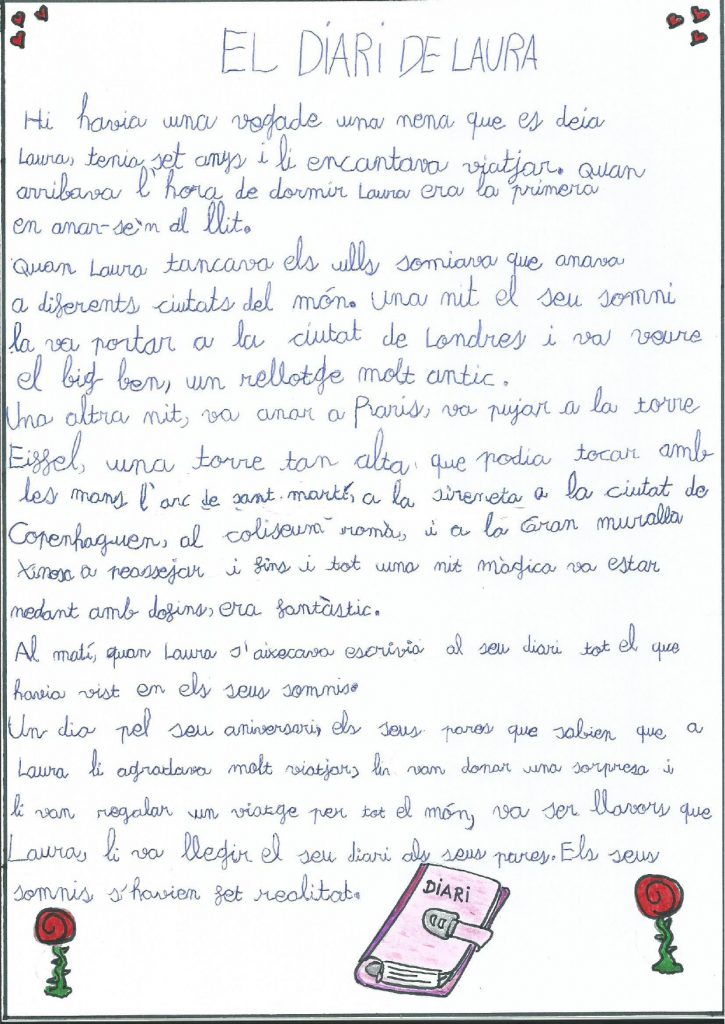 EL DIARI DE LAURA
Hi havia una vegade una nena que es deia
Laura, tenia set anys i li encantava viatjar. Quan
arribava l'hora de dormir Laura era la primera
en anar-se'n al llit.
Quan Laura tancava els ulls somiava que anava
a diferents ciutats del món. Una nit el seu somni
la va portar a la ciutat de Londres i va veure
el big ben, un rellotge molt antic.
Una altra nit, va anar a París, va pujar a la torre
Eiffel, una torre tan alta que podia tocar amb
les mans l'arc de sant martí, a la sireneta a la ciutat de
Copenhaguen, al coliseum romà, i a la Gran muralla
Xinosa a peassejar i fins i tot una nit màgica va estar
nedant amb dofins, era fantàstic.
Al matí, quan Laura s'aixecava escrivia al seu diari tot el que
havia vist en els seus somnis.
Un dia pel seu aniversari, els seus pares que sabien que a
Laura li agradava molt viatjar, li van donar una sorpresa i
li van regalar un viatge per tot el món, va ser llavors que
Laura, li va llegir el seu diari als seus pares. Els seus
somnis s'havien fet realitat.
DIARI